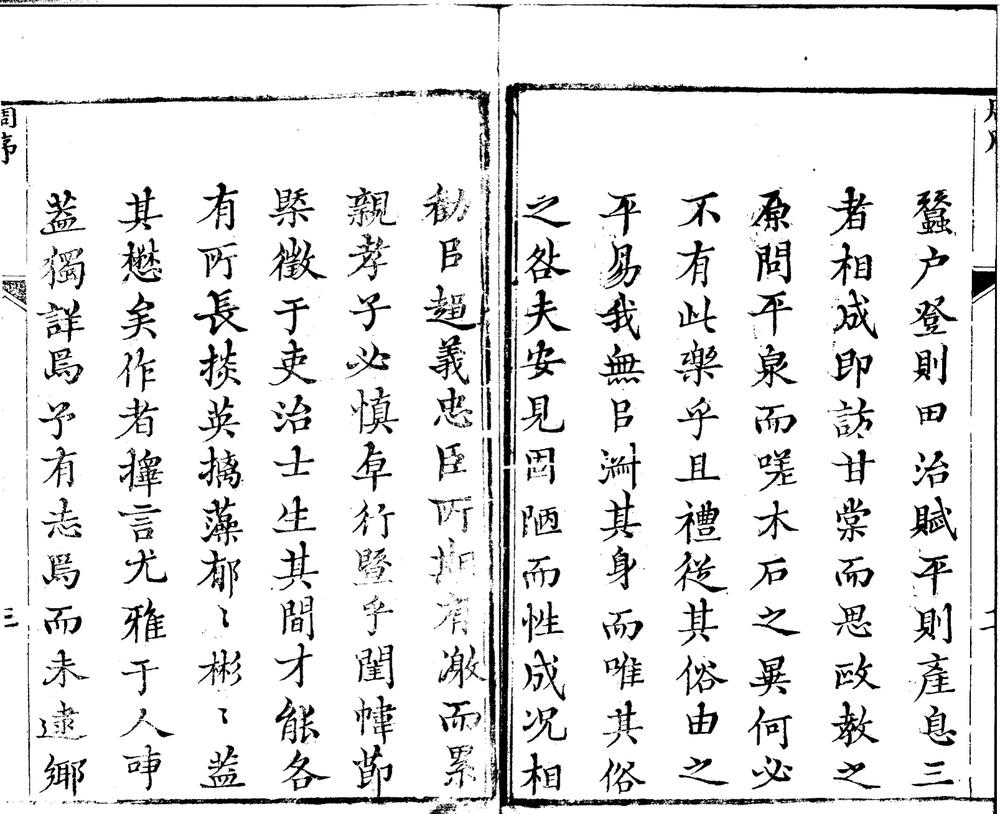 蠶户登則田治賦平則產息三
者相成即訪甘棠而思政教之
原問平泉而嗟木石之異何必
不有此樂乎且禮從其俗由之
平易我無㠯其身而唯其俗
之咎夫安見固陋而性成况相
勸㠯趨義忠臣所期有激而累
親孝子必慎卓行暨乎閨幃節
槩徵于吏治士生其間才能各
有所長掞英摛藻郁〻彬〻葢
其懋矣作者擇言尤雅于人事
葢獨詳焉予有志焉而未逮鄉
周序
三